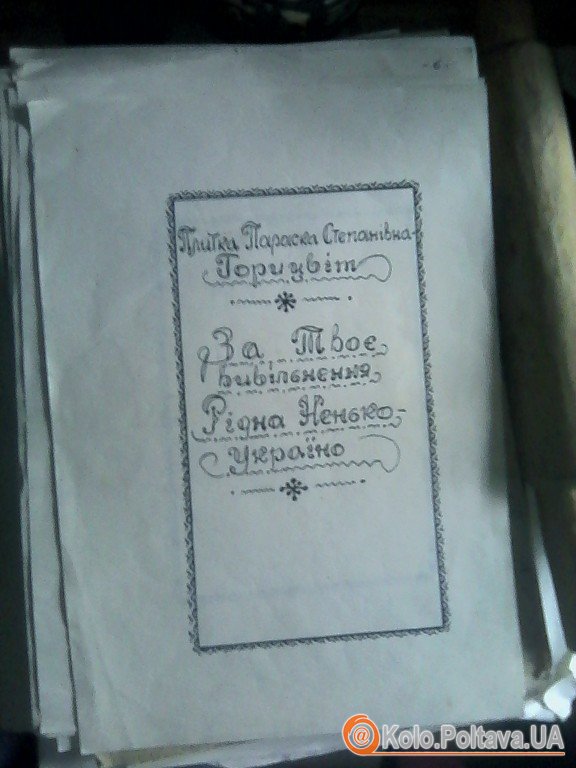 Плитка Параска Степанівна-
Горицвіт
За Твоє
вивільнення
Рідна Ненько-
Україно
@Kolo.Poltava.UA